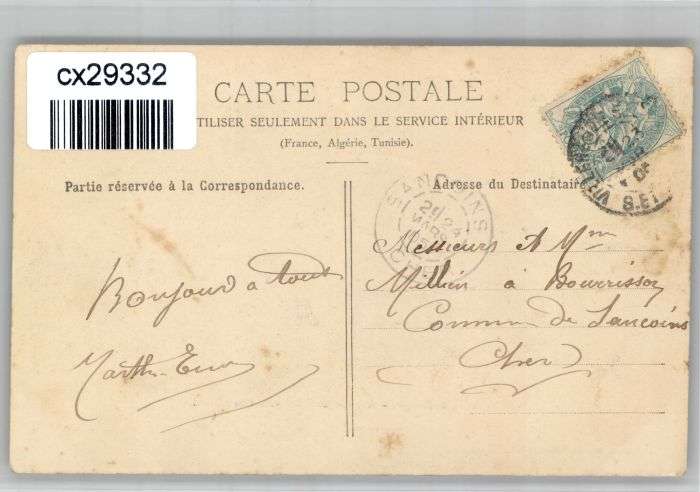 cx29332
CARTE POSTALE
TILISER SEULEMENT DANS LE SERVICE INTÉRIEUR
(France, Algérie, Tunisie).
Partie réservée à la Correspondance.
Adresse du Destinataire
SANCOINS
CHER
Bonjour a tout
Marthe
Messieurs et Mme
Millien à Bourrisson
Commun de Sancoins
Cher